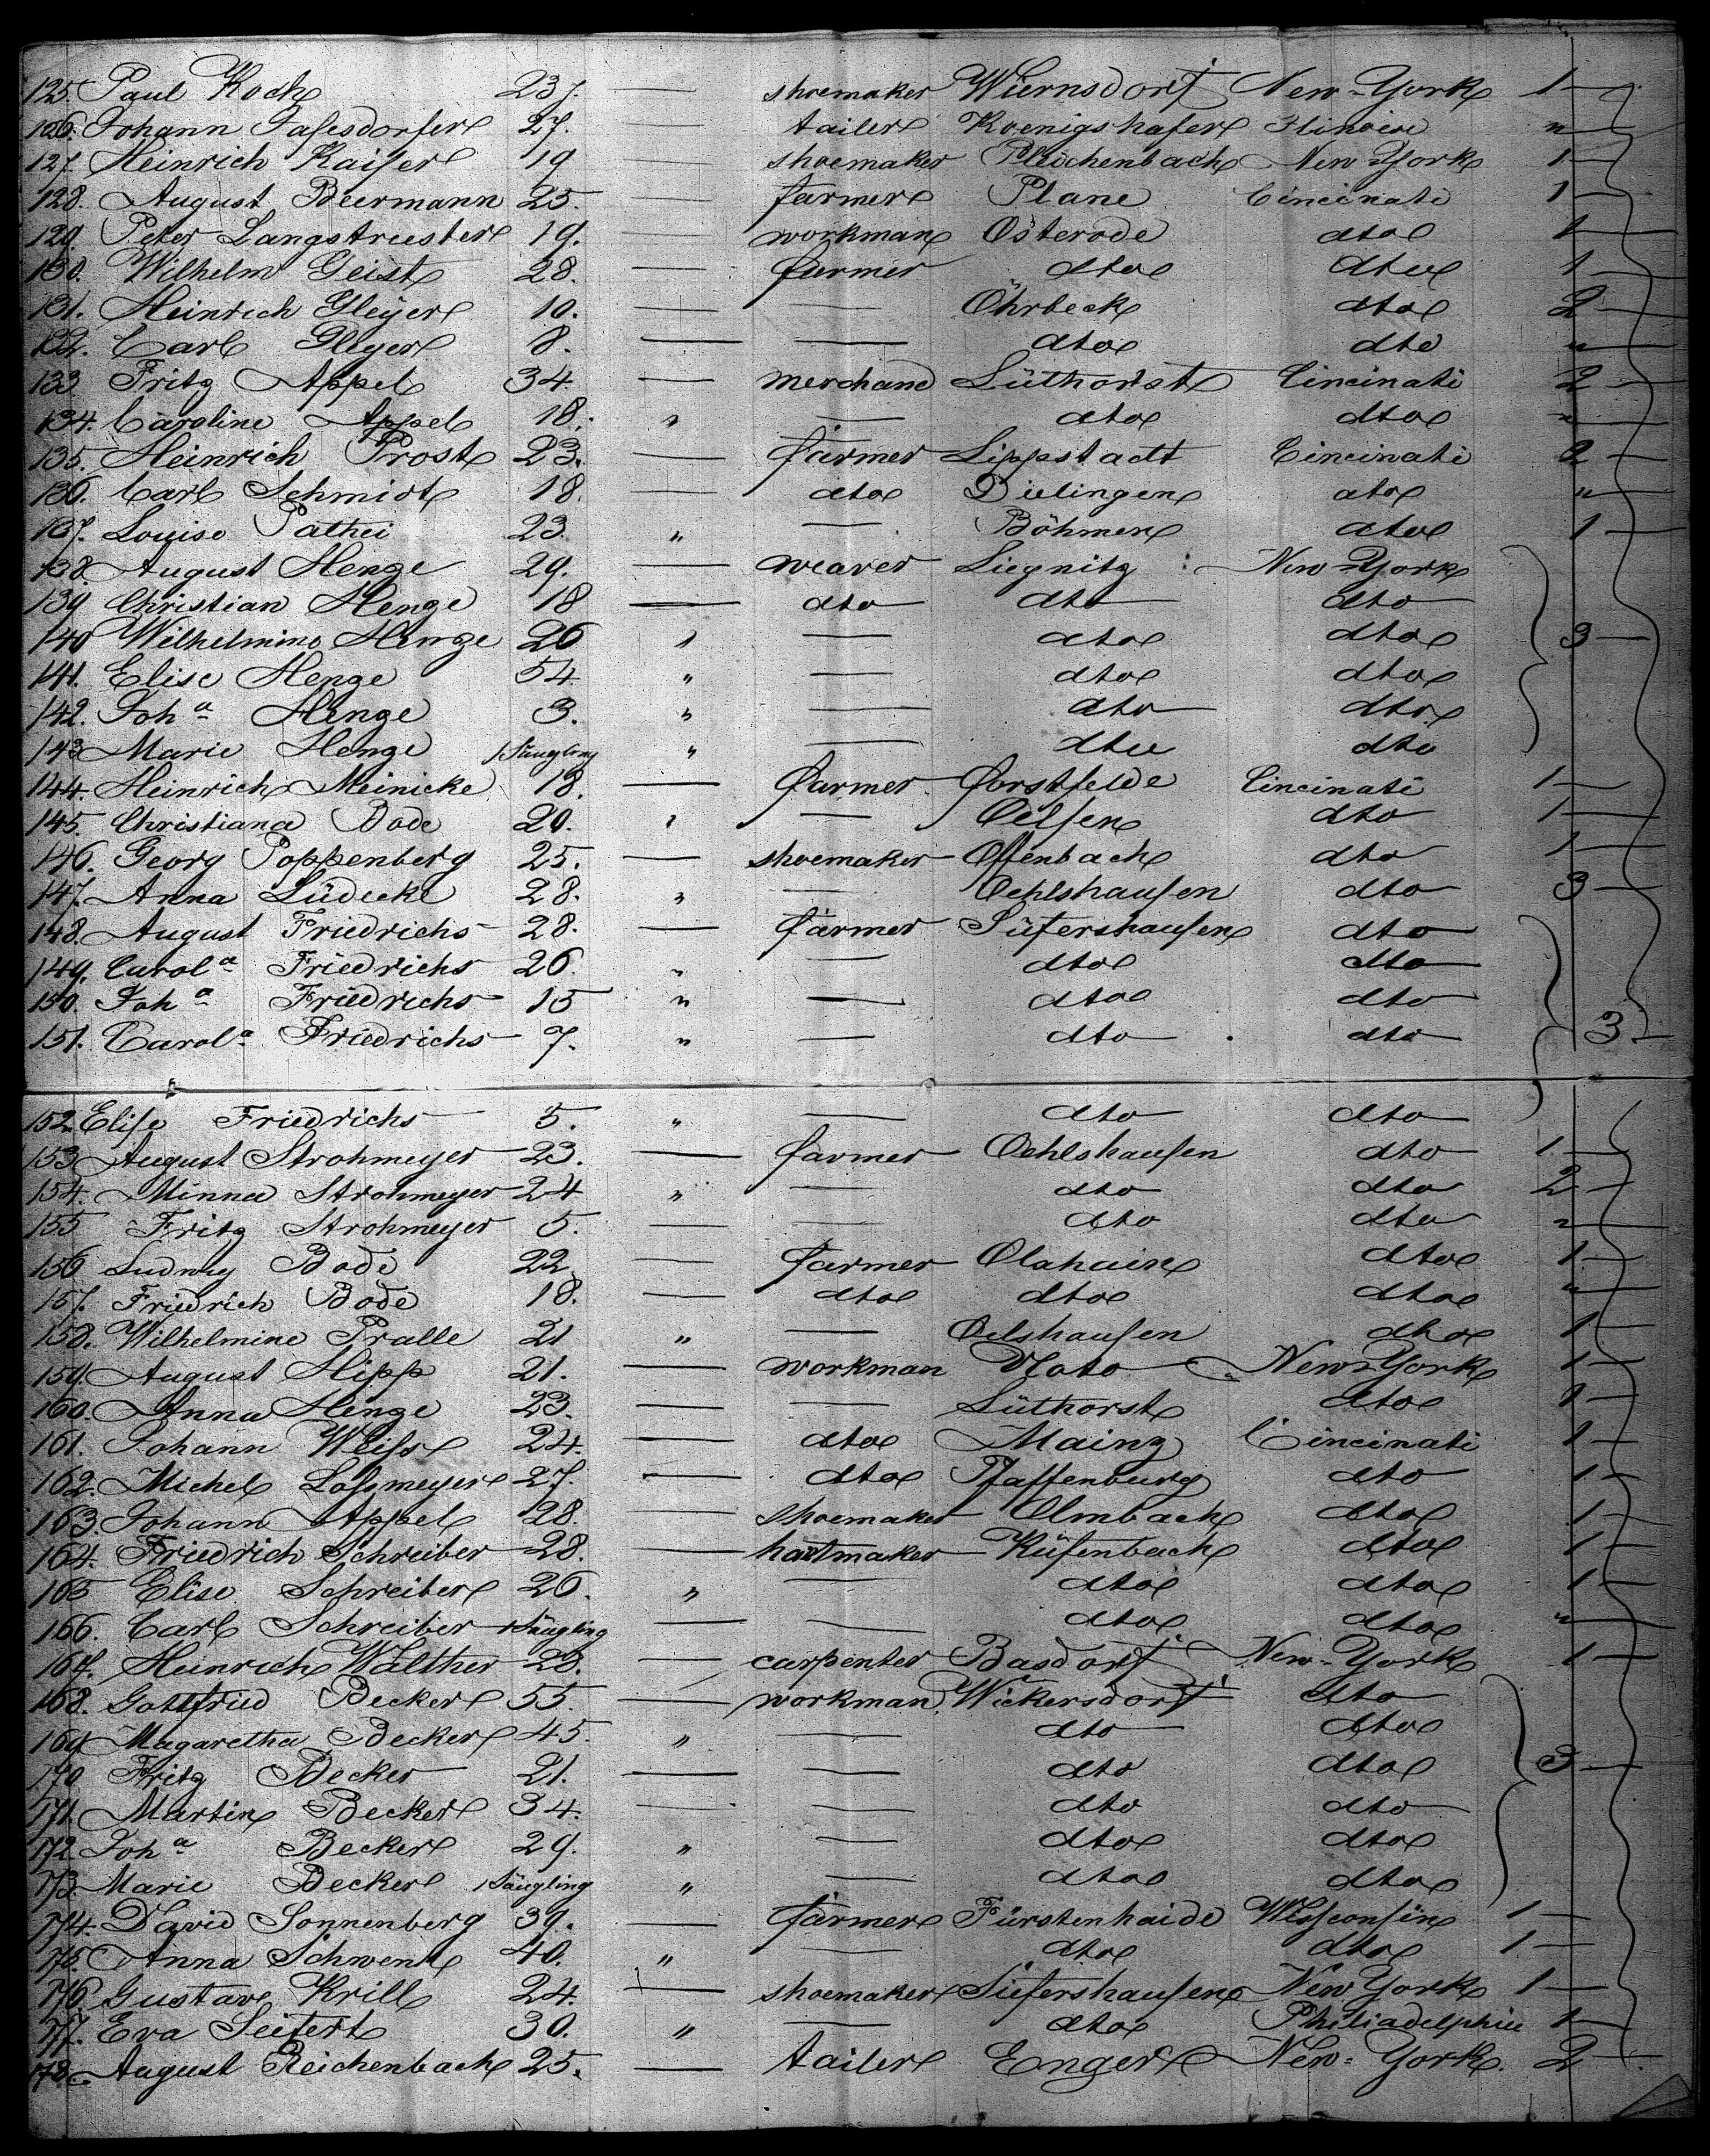 125. Paul Koch 23. — shoemaker Wiernsdorf New-York 1 —
126. Johann Fassesdorfer 27. — tailer Koenigshafer Illinoise " —
127. Heinrich Kaiser 19 — shoemaker Pleichenbach New-York 1 —
128. August Beermann 25. — farmer Plane Cincinati 1 —
129. Peter Langstruester 19. — workman Österode dto 1 —
130. Wilhelm Geist 28. — farmer dto dto 1 —
131. Heinrich Gleyer 10. — — Öhrbeck dto 2 —
132. Carl Gleyer 8. — — dto dto "
133 Fritz Appel 34 — merchand Lüthorst Cincinati 2 —
134. Caroline Appel 18. " — dto dto "
135. Heinrich Prost 23. — farmer Lippstadt Cincinati 2 —
136. Carl Schmidt 18. — dto Dielingen dto "
137. Louise Pathei 23. " — Böhmen dto 1 —
138. August Henge 29. — weaver Liegnitz New-York
139 Christian Henge 18 — dto dto dto
140 Wilhelmine Henge 26 " — dto dto 3 —
141. Elise Henge 54 " — dto dto
142. Joh.a Henge 3. " — dto dto
143 Marie Henge Säugling " — dto dto
144. Heinrich Meinicke 18. — farmer Forstfelde Cincinati 1 —
145. Christiana Bode 20. " — Oelsen dto 1 —
146. Georg Poppenberg 25. — shoemaker Offenbach dto 1 —
147. Anna Lüdecke 28. " — Oehlshausen dto 3 —
148. August Friedrichs 28. — farmer Süfershausen dto
149. Carol.a Friedrichs 26. " — dto dto
150. Joh.a Friedrichs 15 " — dto dto
151. Carol.a Friedrichs 7. " — dto dto 3 —
152 Elise Friedrichs 5. " — dto dto
153 August Strohmeyer 23. — farmer Oehlshausen dto 1 —
154. Minna Strohmeyer 24 " — dto dto 2 —
155 Fritz Strohmeyer 5. — — dto dto "
156 Ludwig Bode 22 — farmer Olahain dto 1 —
157. Friedrich Bode 18. — dto dto dto "
158. Wilhelmine Pralle 21 " — Oelshausen dto 1 —
159. August Hipp 21. — workman Vloto New-York 1 —
160. Anna Henge 23. — — Lüthorst dto 1 —
161. Johann Weiss 24. — dto Mainz Cincinati 1 —
162. Michel Lossmeyer 27. — dto Pfaffenburg dto 1 —
163. Johann Appel 28. — shoemaker Olmbach dto 1 —
164. Friedrich Schreiber 28. — hatmaker Küfenbach dto 1 —
165 Elise Schreiber 26. " — dto dto 1 —
166. Carl Schreiber Säugling — — dto dto "
167. Heinrich Walther 28. — carpenter Basdorf New-York 1 —
168. Gottfried Becker 55. — workman Wickersdorf dto
169 Magaretha Becker 45. " — dto dto
170 Fritz Becker 21. — — dto dto 3 —
171. Martin Becker 34. — — dto dto
172. Joh.a Becker 29. " — dto dto
173. Marie Becker Säugling " — dto dto
174. David Sonnenberg 39. — farmer Fürstenhaide Wissconsin 1 —
175. Anna Schwenk 40. " — dto dto 1 —
176. Gustav Krill 24. — shoemaker Siefershausen New York 1 —
177. Eva Seifert 30. " — dto Philiadelphie 1 —
178. August Reichenbach 25. — tailer Enger New-York. 2 —